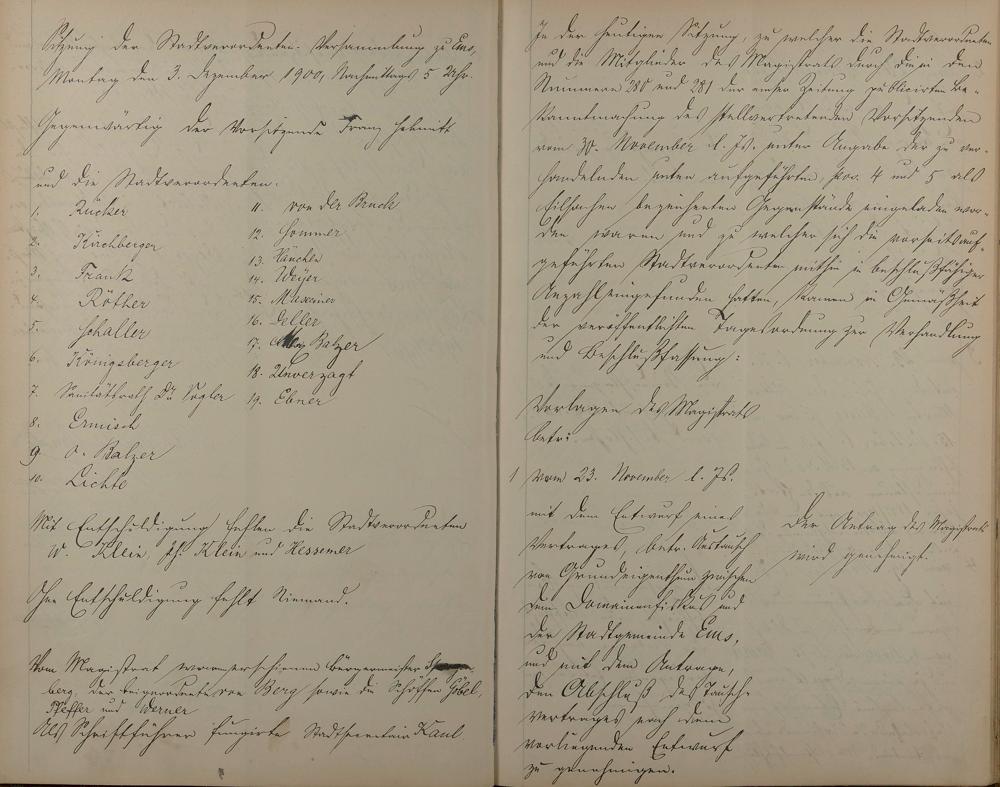 Sitzung der Stadtverordneten-Versammlung zu Ems,
Montag den 3. Dezember 1900, Nachmittags 5 Uhr.
Gegenwärtig der Vorsitzende Franz Schmitt
und die Stadtverordneten.
1. Rücker
2. Kirchberger
3. Frank
4. Röther
5. Schaller
6. Königsberger
7. Sanitätsrath Dr. Vogler
8. Ermisch
9. O. Balzer
10. Lichte
11. von der Bruck
12. Sommer
13.
14. Weyer
15.
16. Deller
17. Balzer
18. Unverzagt
19. Ebner
Mit Entschuldigung fehlen die Stadtverordneten
W. Klein, Ph. Klein und Hessemer
Ohne Entschuldigung fehlt Niemand.
Vom Magistrat waren erschienen Bürgermeister
berg, der Beigeordnete von Berg sowie die Schöffen Göbel,
Pfeffer und Werner
Als Schriftführer fungirte Stadtsecretair Kaul
In der heutigen Sitzung, zu welcher die Stadtverordneten
und die Mitglieder des Magistrats durch die in den
Nummern 280 und 281 der Emser Zeitung publicirten Be-
kanntmachung des stellvertretenden Vorsitzenden
vom 30. November l. Js. unter Angabe der zu ver-
handelnden unten aufgeführten, pos. 4 und 5 als
Eilsachen bezeichneten Gegenstände eingeladen wor-
den waren und zu welcher sich die vorseits auf-
geführten Stadtverordneten mithin in beschlußfähiger
Anzahl eingefunden hatten, kamen in Gemäßheit
der veröffentlichten Tagesordnung zur Verhandlung
und Beschlußfassung:
Vorlagen des Magistrats
betr:
1 vom 23. November l. Js.
mit dem Entwurf eines
Vertrages, betr. Austausch
von Grundeigenthum zwischen
dem Domainenfiskus und
der Stadtgemeinde Ems,
und mit dem Antrage,
den Abschluß des Tausch-
vertrages nach dem
vorliegenden Entwurf
zu genehmigen.
Der Antrag des Magistrats
wird genehmigt.